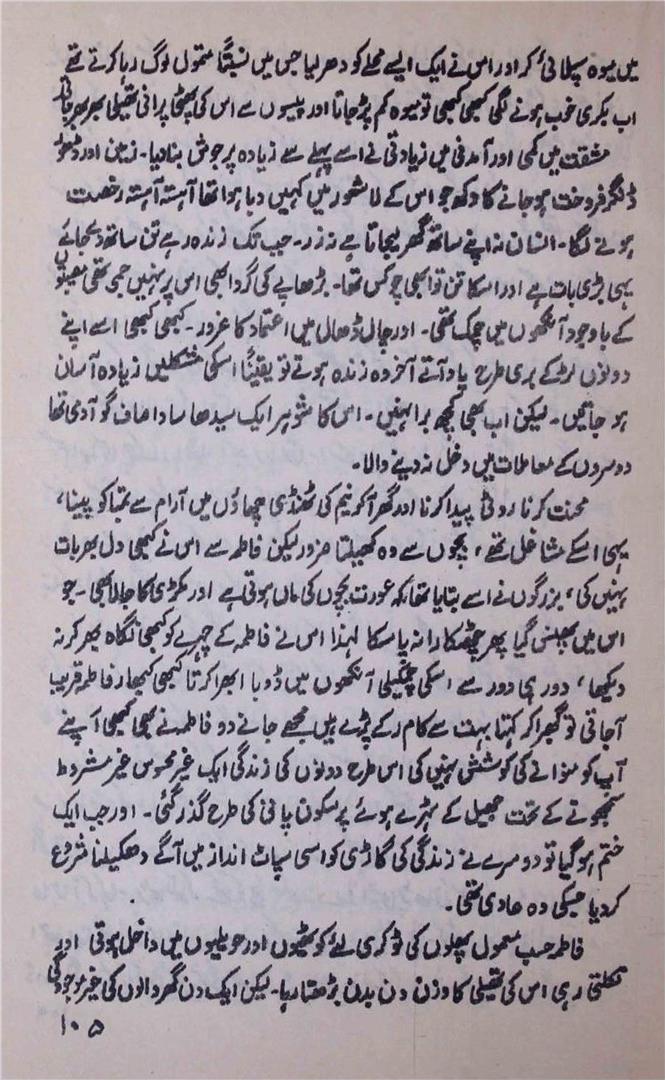 میں میوہ سپلائی کر اور اس نے ایک ایسے محلے کو دھر لیا جس میں نسبتًا متمول لوگ رہا کرتے تھے
اب بکری خوب ہونے لگی کبھی کبھی تو میوہ کم پڑ جاتا اور پیسوں سے اس کی پھٹی پرانی تھیلی بھر بھر جاتی
مشقت میں کمی اور آمدنی میں زیادتی نے اسے پہلے سے زیادہ پرجوش بنا دیا۔ زمین اور ڈھور
ڈنگر فروخت ہو جانے کا دکھ جو اس کے لاشعور میں کہیں دبا ہوا تھا آہستہ آہستہ رخصت
ہونے لگا۔ انسان نہ اپنے ساتھ گھر لیجاتا ہے نہ زر۔ جب تک زندہ رہے تن ساتھ دیجائے
یہی بڑی بات ہے اور اسکا تن تو ابھی چوکس تھا۔ بڑھاپے کی گرد ابھی اس پر نہیں جمی تھی مصیبتوں
کے باوجود آنکھوں میں چمک تھی۔ اور چال ڈھال میں اعتماد کا غرور۔ کبھی کبھی اسے اپنے
دونوں لڑکے بری طرح یاد آتے آخر وہ زندہ ہوتے تو یقینًا اسکی مشکلیں زیادہ آسان
ہو جاتیں۔ لیکن اب بھی کچھ برا نہیں۔ اس کا شوہر ایک سیدھا سادا صاف گو آدمی تھا
دوسروں کے معاملات میں دخل نہ دینے والا۔
محنت کرنا روٹی پیدا کرنا اور گھر آکر نیم کی ٹھنڈی چھاؤں میں آرام سے تمباکو پینا،
یہی اسکے مشاغل تھے، بچوں سے وہ کھیلتا ضرور لیکن فاطمہ سے اس نے کبھی دل بھر بات
نہیں کی، بزرگوں نے اسے بتایا تھا کہ عورت بچوں کی ماں ہوتی ہے اور مکڑی کا جالا بھی۔ جو
اس میں پھنس گیا پھر چھٹکارا نہ پا سکا لہذا اس نے فاطمہ کے چہرے کو کبھی نگاہ بھر کر نہ
دیکھا، دور ہی دور سے اسکی چمکیلی آنکھوں میں ڈوبا ابھرا کرتا کبھی کبھار فاطمہ قریب
آجاتی تو گھبرا کر کہتا بہت سے کام رکے پڑے ہیں مجھے جانے دو فاطمہ نے بھی کبھی اپنے
آپ کو منوانے کی کوشش نہیں کی اس طرح دونوں کی زندگی ایک غیر محسوس غیر مشروط
سمجھوتے کے تحت جھیل کے ٹہرے ہوئے پرسکون پانی کی طرح گذر گئی۔ اور جب ایک
ختم ہو گیا تو دوسرے نے زندگی کی گاڑی کو اسی سپاٹ انداز میں آگے دھکیلنا شروع
کر دیا جسکی وہ عادی تھی۔
فاطمہ حسب معمول پھلوں کی ٹوکری لئے کوٹھیوں اور حویلیوں میں داخل ہوتی اور
نکلتی رہی اس کی تھیلی کا وزن دن بدن بڑھتا رہا۔ لیکن ایک دن گھر والوں کی غیر موجودگی
۱۰۵